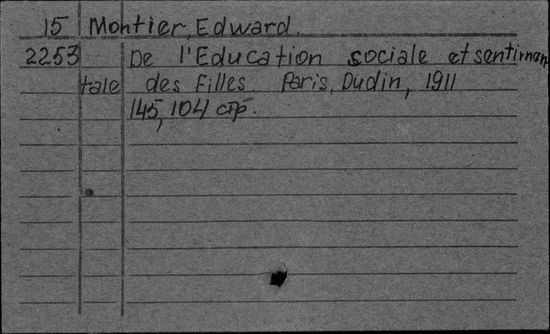 15 Montier, Edward.
2253 De l'Education sociale et sentimen
tale des Filles. Paris, Dudin, 1911
145, 104 стр.